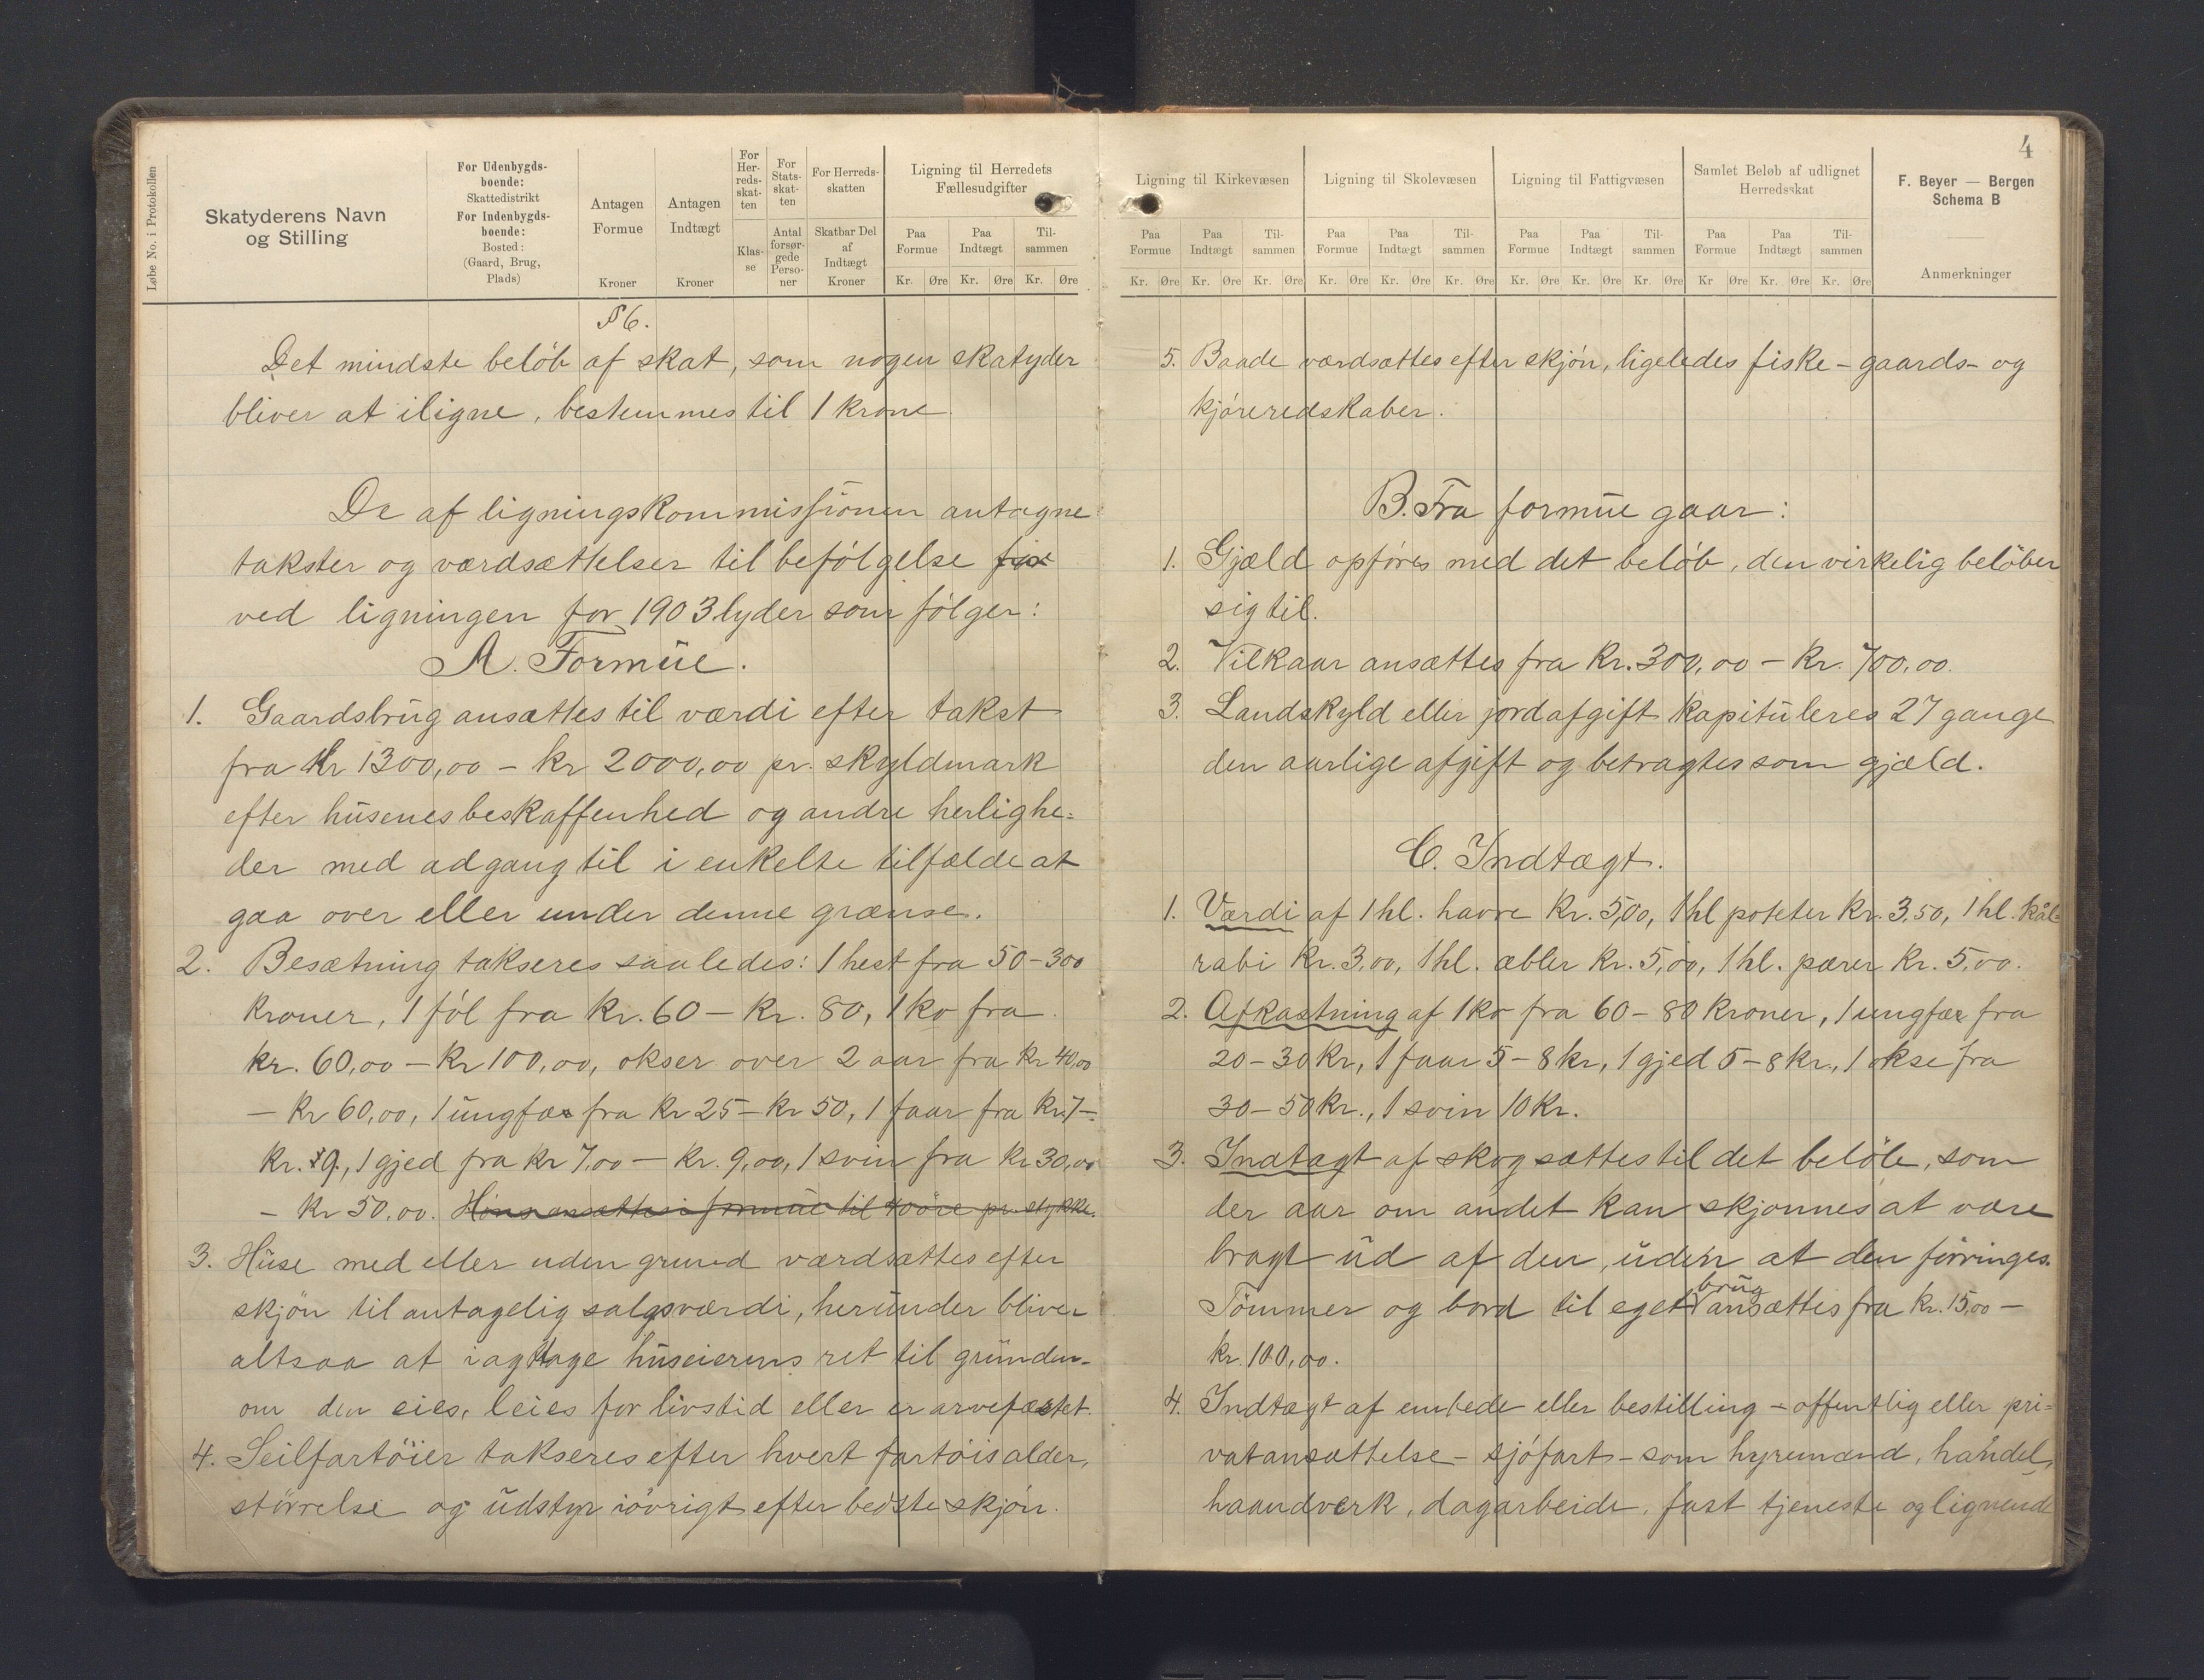 Løbe No. i Protokollen
Skatyderens Navn
og Stilling
For Udenbygds-
boende:
Skattedistrikt
For Indenbygds-
boende:
Bosted:
(Gaard, Brug,
Plads)
Antagen
Formue
Kroner
Antagen
Indtægt
Kroner
For
Her-
reds-
skat-
ten
Klas-
se
For
Stats-
skat-
ten
Antal
forsør-
gede
Perso-
ner
For Herreds-
skatten
Skatbar Del
af
Indtægt
Kroner
Ligning til Herredets
Fællesudgifter
Paa
Formue
Paa
Indtægt
Til-
sammen
Kr. Øre Kr. Øre Kr. Øre
§ 6.
Det mindste beløb af skat, som nogen skatyder
bliver at iligne, bestemmes til 1 krone
De af ligningskommissionen antagne
takster og værdsættelser til befølgelse for
ved ligningen for 1903 lyder som følger:
A. Formue.
1. Gaardsbrug ansættes til værdi efter takst
fra kr 1300,00 – kr 2000,00 pr. skyldmark
efter husenes beskaffenhed og andre herlighe-
der med adgang til i enkelte tilfælde at
gaa over eller under denne grænse.
2. Besætning takseres saaledes: 1 hest fra 50–300
kroner, 1 føl fra kr. 60 – kr. 80, 1 ko fra
kr. 60,00 – kr 100,00, okser over 2 aar fra kr 40,00
– kr 60,00, 1 ungfæ fra kr 25 – kr 50, 1 faar fra kr. 7 –
kr. 9., 1 gjed fra kr 7,00 – kr. 9,00, 1 svin fra kr 30,00
– kr 50,00. Høns ansættes i formue til 40 øre pr. stykke.
3. Huse med eller uden grund værdsættes efter
skjøn til antagelig salgsværdi, herunder bliver
altsaa at iagttage huseierens ret til grunden-
om den eies, leies for livstid eller er arvefæstet.
4. Seilfartøier takseres efter hvert fartøis alder,
størrelse og udstyr iøvrigt efter bedste skjøn.
4
Ligning til Kirkevæsen
Paa
Formue
Paa
Indtægt
Til-
sammen
Kr. Øre Kr. Øre Kr. Øre
Ligning til Skolevæsen
Paa
Formue
Paa
Indtægt
Til-
sammen
Kr. Øre Kr. Øre Kr. Øre
Ligning til Fattigvæsen
Paa
Formue
Paa
Indtægt
Til-
sammen
Kr. Øre Kr. Øre Kr. Øre
Samlet Beløb af udlignet
Herredsskat
Paa
Formue
Paa
Indtægt
Til-
sammen
Kr Øre Kr. Øre Kr. Øre
F. Beyer — Bergen
Schema B
Anmerkninger
5. Baade værdsættes efter skjøn, ligeledes fiske- gaards- og
kjøreredskaber.
B. Fra formue gaar:
1. Gjæld opføres med det beløb, den virkelig beløber
sig til.
2. Vilkaar ansættes fra kr. 300,00 – kr. 700,00.
3. Landskyld eller jordafgift kapituleres 27 gange
den aarlige afgift og betragtes som gjæld.
C. Indtægt.
1. Værdi af 1 hl. havre kr. 5,00, 1 hl poteter kr. 3,50, 1 hl. kål-
rabi kr. 3,00, 1 hl. æbler kr. 5,00, 1 hl. pærer kr. 5,00.
2. Afkastning af 1 ko fra 60 – 80 kroner, 1 ungfæ fra
20 – 30 kr, 1 faar 5 – 8 kr, 1 gjed 5 – 8 kr., 1 okse fra
30 – 50 kr., 1 svin 10 kr.
3. Indtægt af skog sættes til det beløb, som
der aar om andet kan skjønnes at være
bragt ud af den, uden at den forringes.
Tømmer og bord til eget brug ansættes fra kr. 15,00 –
kr. 100,00.
4. Indtægt af embede eller bestilling – offentlig eller pri-
vatansættelse – sjøfart – som hyremænd, handel,
haandverk, dagarbeide, fast tjeneste og lignende